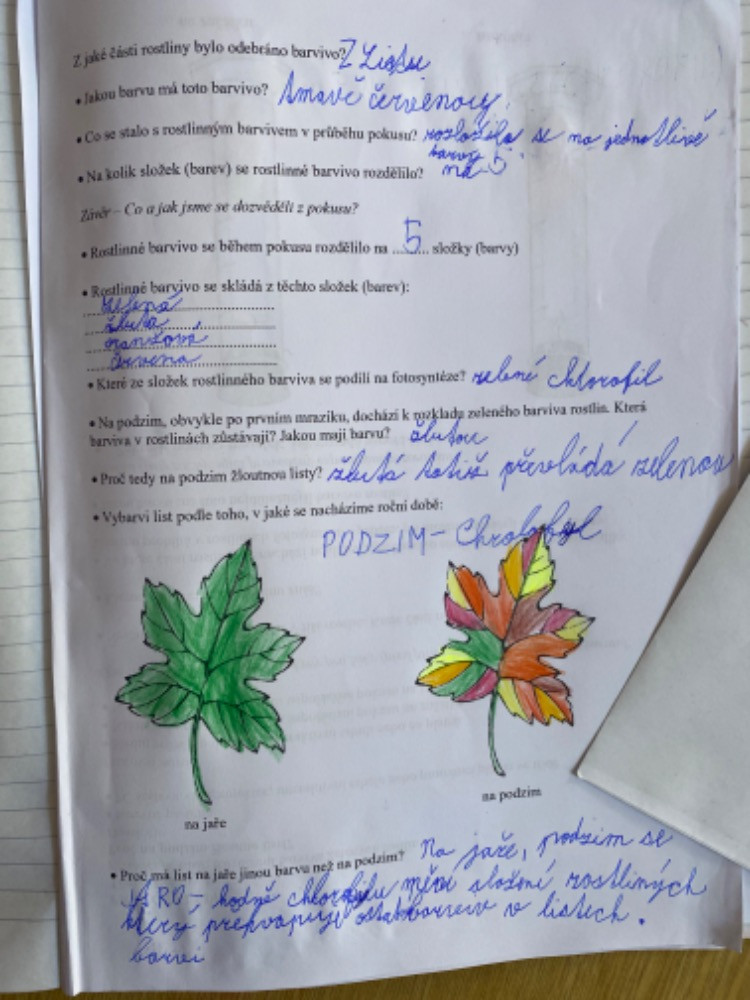 Z jaké části rostliny bylo odebráno barvivo? Z Listu
• Jakou barvu má toto barvivo? tmavě červenou
• Co se stalo s rostlinným barvivem v průběhu pokusu? rozložilo se na jednotlivé
barvy
• Na kolik složek (barev) se rostlinné barvivo rozdělilo? na 5
Závěr – Co a jak jsme se dozvěděli z pokusu?
• Rostlinné barvivo se během pokusu rozdělilo na ...5... složky (barvy)
• Rostlinné barvivo se skládá z těchto složek (barev):
zelená
žlutá
oranžová
červená
• Které ze složek rostlinného barviva se podílí na fotosyntéze? zelené chlorofil
• Na podzim, obvykle po prvním mrazíku, dochází k rozkladu zeleného barviva rostlin. Která
barviva v rostlinách zůstávají? Jakou mají barvu? žlutou
• Proč tedy na podzim žloutnou listy? žlutá totiž převládá zelenou
• Vybarvi list podle toho, v jaké se nacházíme roční době:
PODZIM -
na jaře
na podzim
• Proč má list na jaře jinou barvu než na podzim? Na jaře, podzim se
JARO - hodně chlorofylu mění složení rostliných
který barviv v listech.
barvi